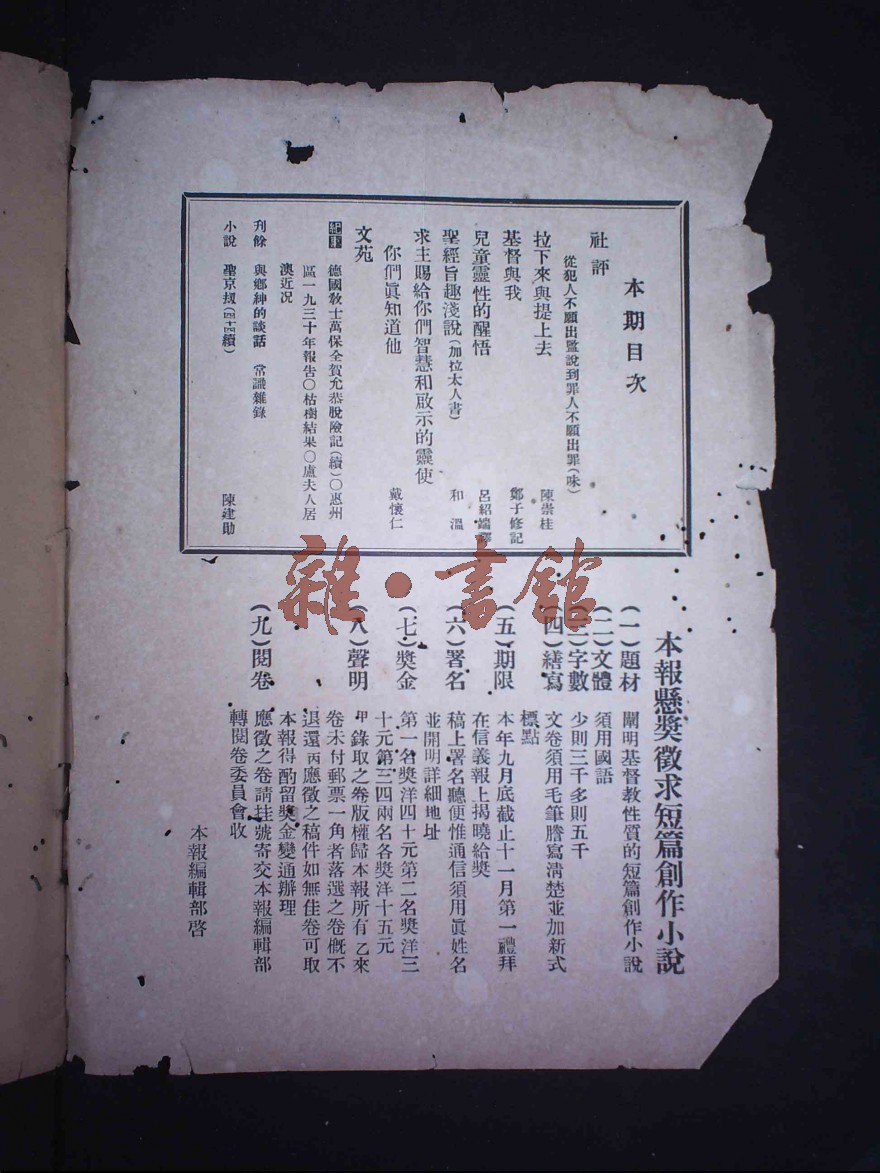 本期目次
社評
從犯人不願出監說到罪人不願出罪(味)
拉下來與提上去 陳崇桂
基督與我 鄭子修記
兒童靈性的醒悟 呂紹端譯
聖經旨趣淺說(加拉太人書) 和溫
求主賜給你們智慧和啟示的靈使
你們眞知道他 戴懷仁
文苑
紀事 德國敎士萬保全賀允恭脫險記(續)〇惠州
區一九三十年報告〇枯樹結果〇盧夫人居
澳近况
刋餘 與鄉紳的談話 常識雜錄
小說 聖京掇(四十四續) 陳建勛
本報懸獎徵求短篇創作小說
(一)題材 闡明基督敎性質的短篇創作小說
(二)文體 須用國語
(三)字數 少則三千多則五千
(四)繕寫 文卷須用毛筆謄寫淸楚並加新式
標點
(五)期限 本年九月底截止十一月第一禮拜
在信義報上揭曉給獎
(六)署名 稿上署名聽便惟通信須用眞姓名
並開明詳細地址
(七)獎金 第一名獎洋四十元第二名獎洋三
十元第三四兩名各獎洋十五元
(八)聲明 甲錄取之卷版權歸本報所有乙來
卷未付郵票一角者落選之卷槪不
退還丙應徵之稿件如無佳卷可取
本報得酌留獎金變通辦理
(九)閱卷 應徵之卷請挂號寄交本報編輯部
轉閱卷委員會收
本報編輯部啓
雜·書館